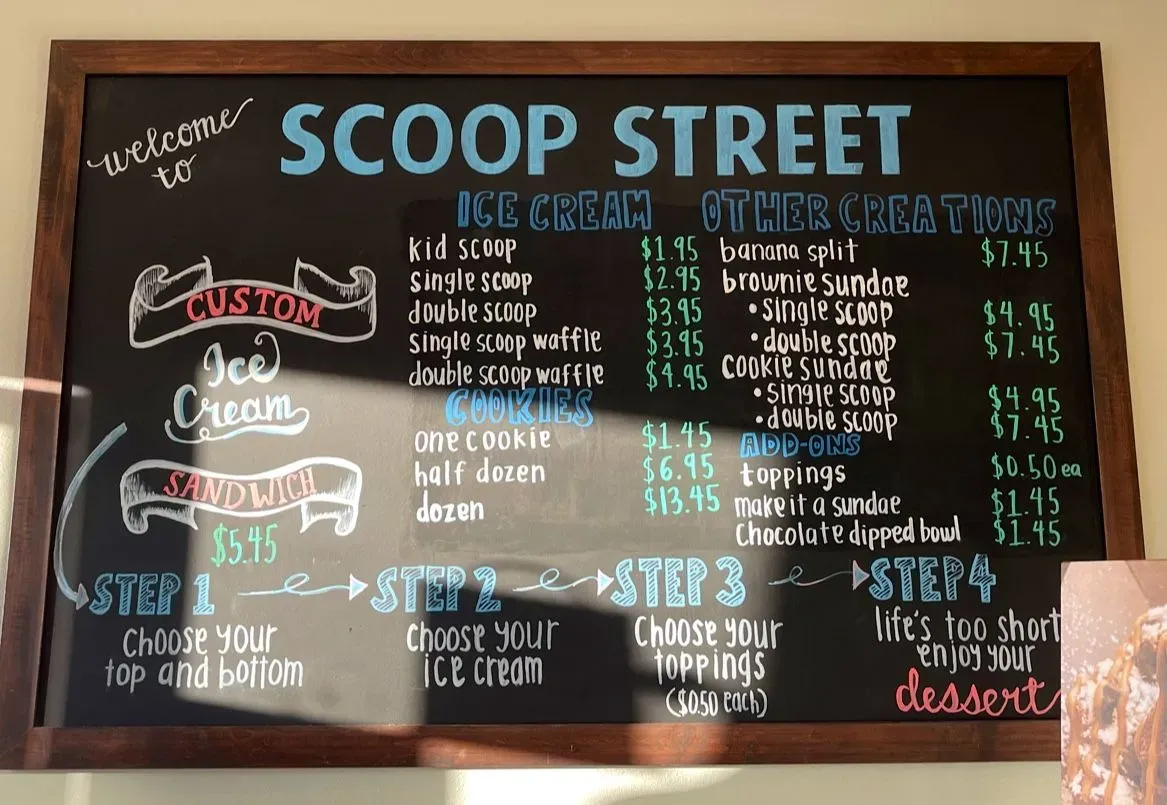 welcome
to
SCOOP STREET
CUSTOM
Ice
Cream
SANDWICH
$5.45
ICE CREAM
kid scoop $1.95
single scoop $2.95
double scoop $3.95
single scoop waffle $3.95
double scoop waffle $4.95
COOKIES
one cookie $1.45
half dozen $6.95
dozen $13.45
OTHER CREATIONS
banana split $7.45
brownie sundae
• single scoop $4.95
• double scoop $7.45
cookie sundae
• single scoop $4.95
• double scoop $7.45
ADD-ONS
toppings $0.50 ea
make it a sundae $1.45
Chocolate dipped bowl $1.45
STEP 1
Choose your
top and bottom
STEP 2
Choose your
ice cream
STEP 3
Choose your
toppings
($0.50 each)
STEP 4
life's too short
enjoy your
dessert